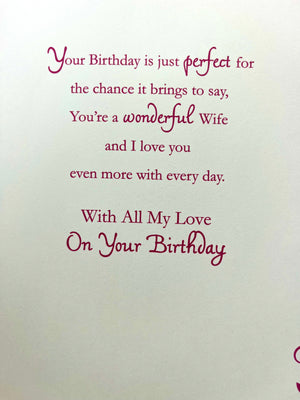 Your Birthday is just perfect for
the chance it brings to say,
You're a wonderful Wife
and I love you
even more with every day.
With All My Love
On Your Birthday